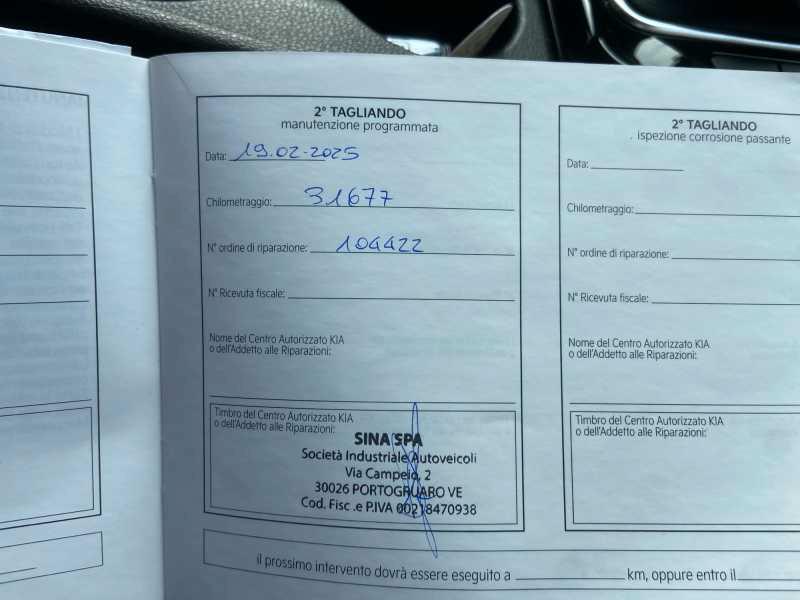 2° TAGLIANDO
manutenzione programmata
Data: 19.02-2025
Chilometraggio: 31677
N° ordine di riparazione: 104422
N° Ricevuta fiscale:
Nome del Centro Autorizzato KIA
o dell'Addetto alle Riparazioni:
Timbro del Centro Autorizzato KIA
o dell'Addetto alle Riparazioni:
SINA SPA
Società Industriale Autoveicoli
Via Campeio, 2
30026 PORTOGRUARO VE
Cod. Fisc .e P.IVA 00218470938
2° TAGLIANDO
. ispezione corrosione passante
Data:
Chilometraggio:
N° ordine di riparazione:
N° Ricevuta fiscale:
Nome del Centro Autorizzato KIA
o dell'Addetto alle Riparazioni:
Timbro del Centro Autorizzato KIA
o dell'Addetto alle Riparazioni:
il prossimo intervento dovrà essere eseguito a km, oppure entro il